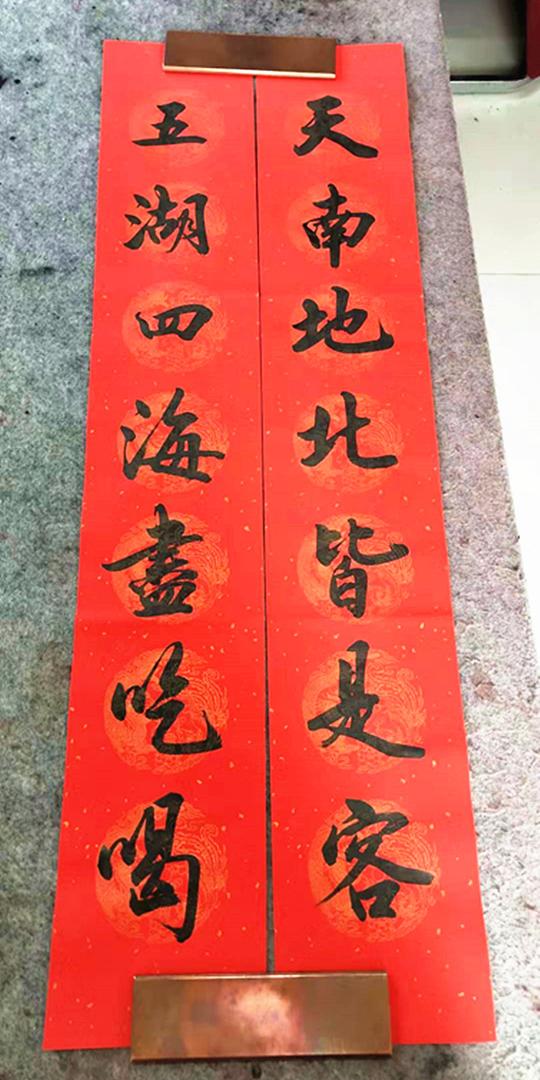 天南地北皆是客
五湖四海盡吃喝